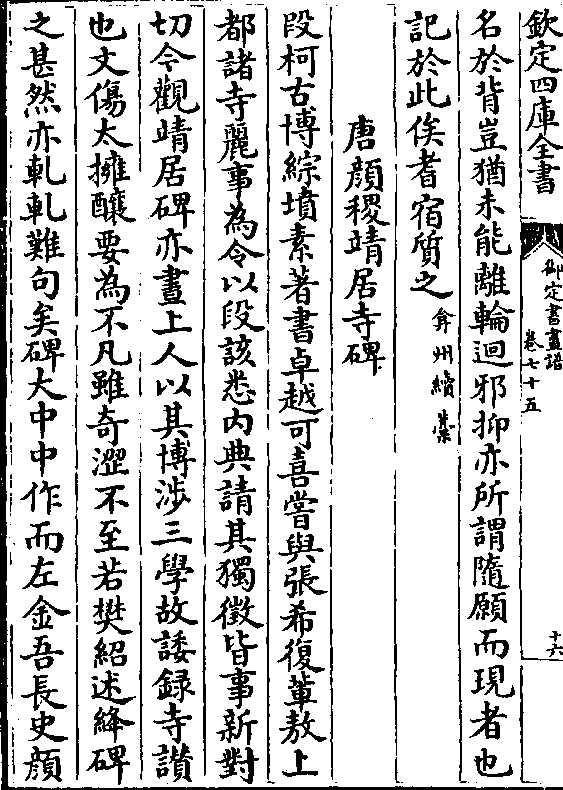 欽定四庫全書
御定書畫譜
卷七十五
十六
名於背豈猶未能離輪迴邪抑亦所謂隨願而現者也
記於此俟耆宿質之弇州續藁
唐顔稷靖居寺碑
段柯古博綜墳素著書卓越可喜嘗與張希復輩敖上
都諸寺麗事為令以段該悉内典請其獨徵皆事新對
切今觀靖居碑亦晝上人以其博涉三學故諉録寺讃
也文傷太擁釀要為不凡雖奇澀不至若樊紹述絳碑
之甚然亦軋軋難句矣碑大中中作而左金吾長史顔